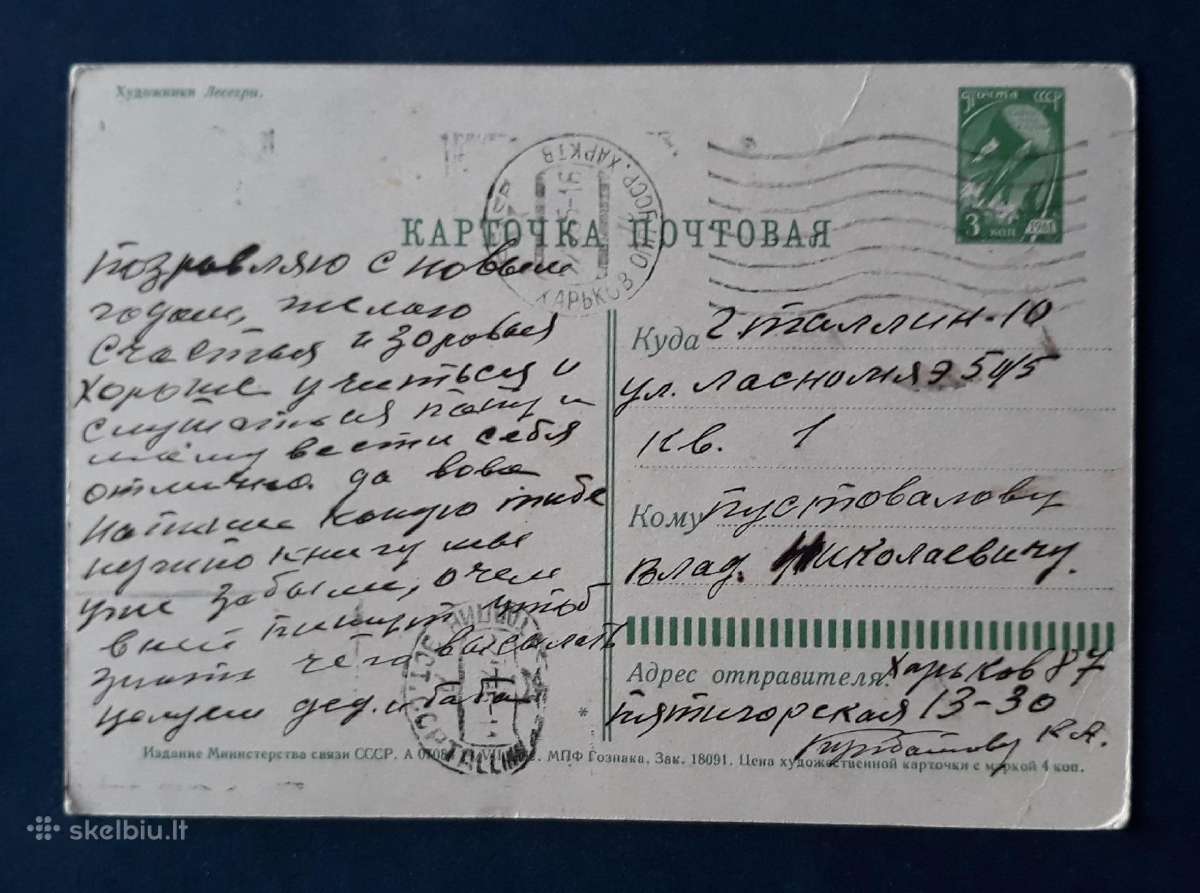 Художники Лесегри.
ПОЧТА СССР
3 КОП
1961
ХАРЬКОВ
КАРТОЧКА ПОЧТОВАЯ
поздравляю с новым
годом, желаю
счастья и здоровья
хороше учиться и
слушаться папу и
маму вести себя
отлично. да вова
напиши какую тибе
нужно книгу мы
уже забыли, о чем
в ней пишут, чтоб
знать чего высылать
целуем дед. и баба
Куда г. таллин-10
ул. ласномяэ 5
кв. 1
Кому пустовалову
влад. Николаевичу.
Адрес отправителя: Харьков 87
пятигорская 13-30
К.А.
TALLINN
Издание Министерства связи СССР. А МПФ Гознака. Зак. 18091. Цена художественной карточки с маркой 4 коп.
skelbiu.lt